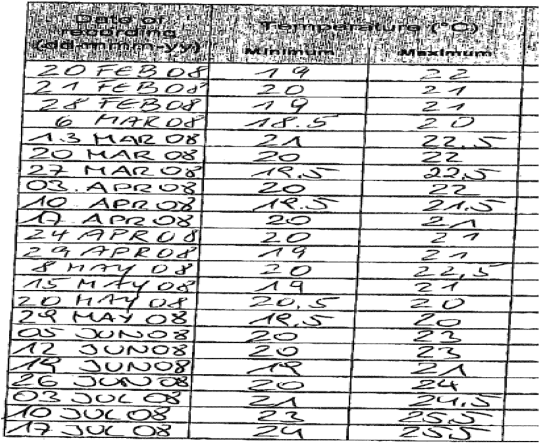 Date of recording (dd-mmm-yy) Temperature (°C)
Minimum Maximum
20 FEB 08 19 22
21 FEB 08 20 21
28 FEB 08 19 21
6 MAR 08 18.5 20
13 MAR 08 21 22.5
20 MAR 08 20 22
27 MAR 08 19.5 22.5
03. APR 08 20 22
10 APR 08 19.5 21.5
17 APR 08 20 21
24 APR 08 20 21
29 APR 08 19 21
8 MAY 08 20 22,5
15 MAY 08 19 21
20 MAY 08 20.5 20
29 MAY 08 19.5 20
05 JUN 08 20 23
12 JUN 08 20 23
19 JUN 08 19 21
26 JUN 08 20 24
03 JUL 08 21 24.5
10 JUL 08 23 25.5
17 JUL 08 24 25.5